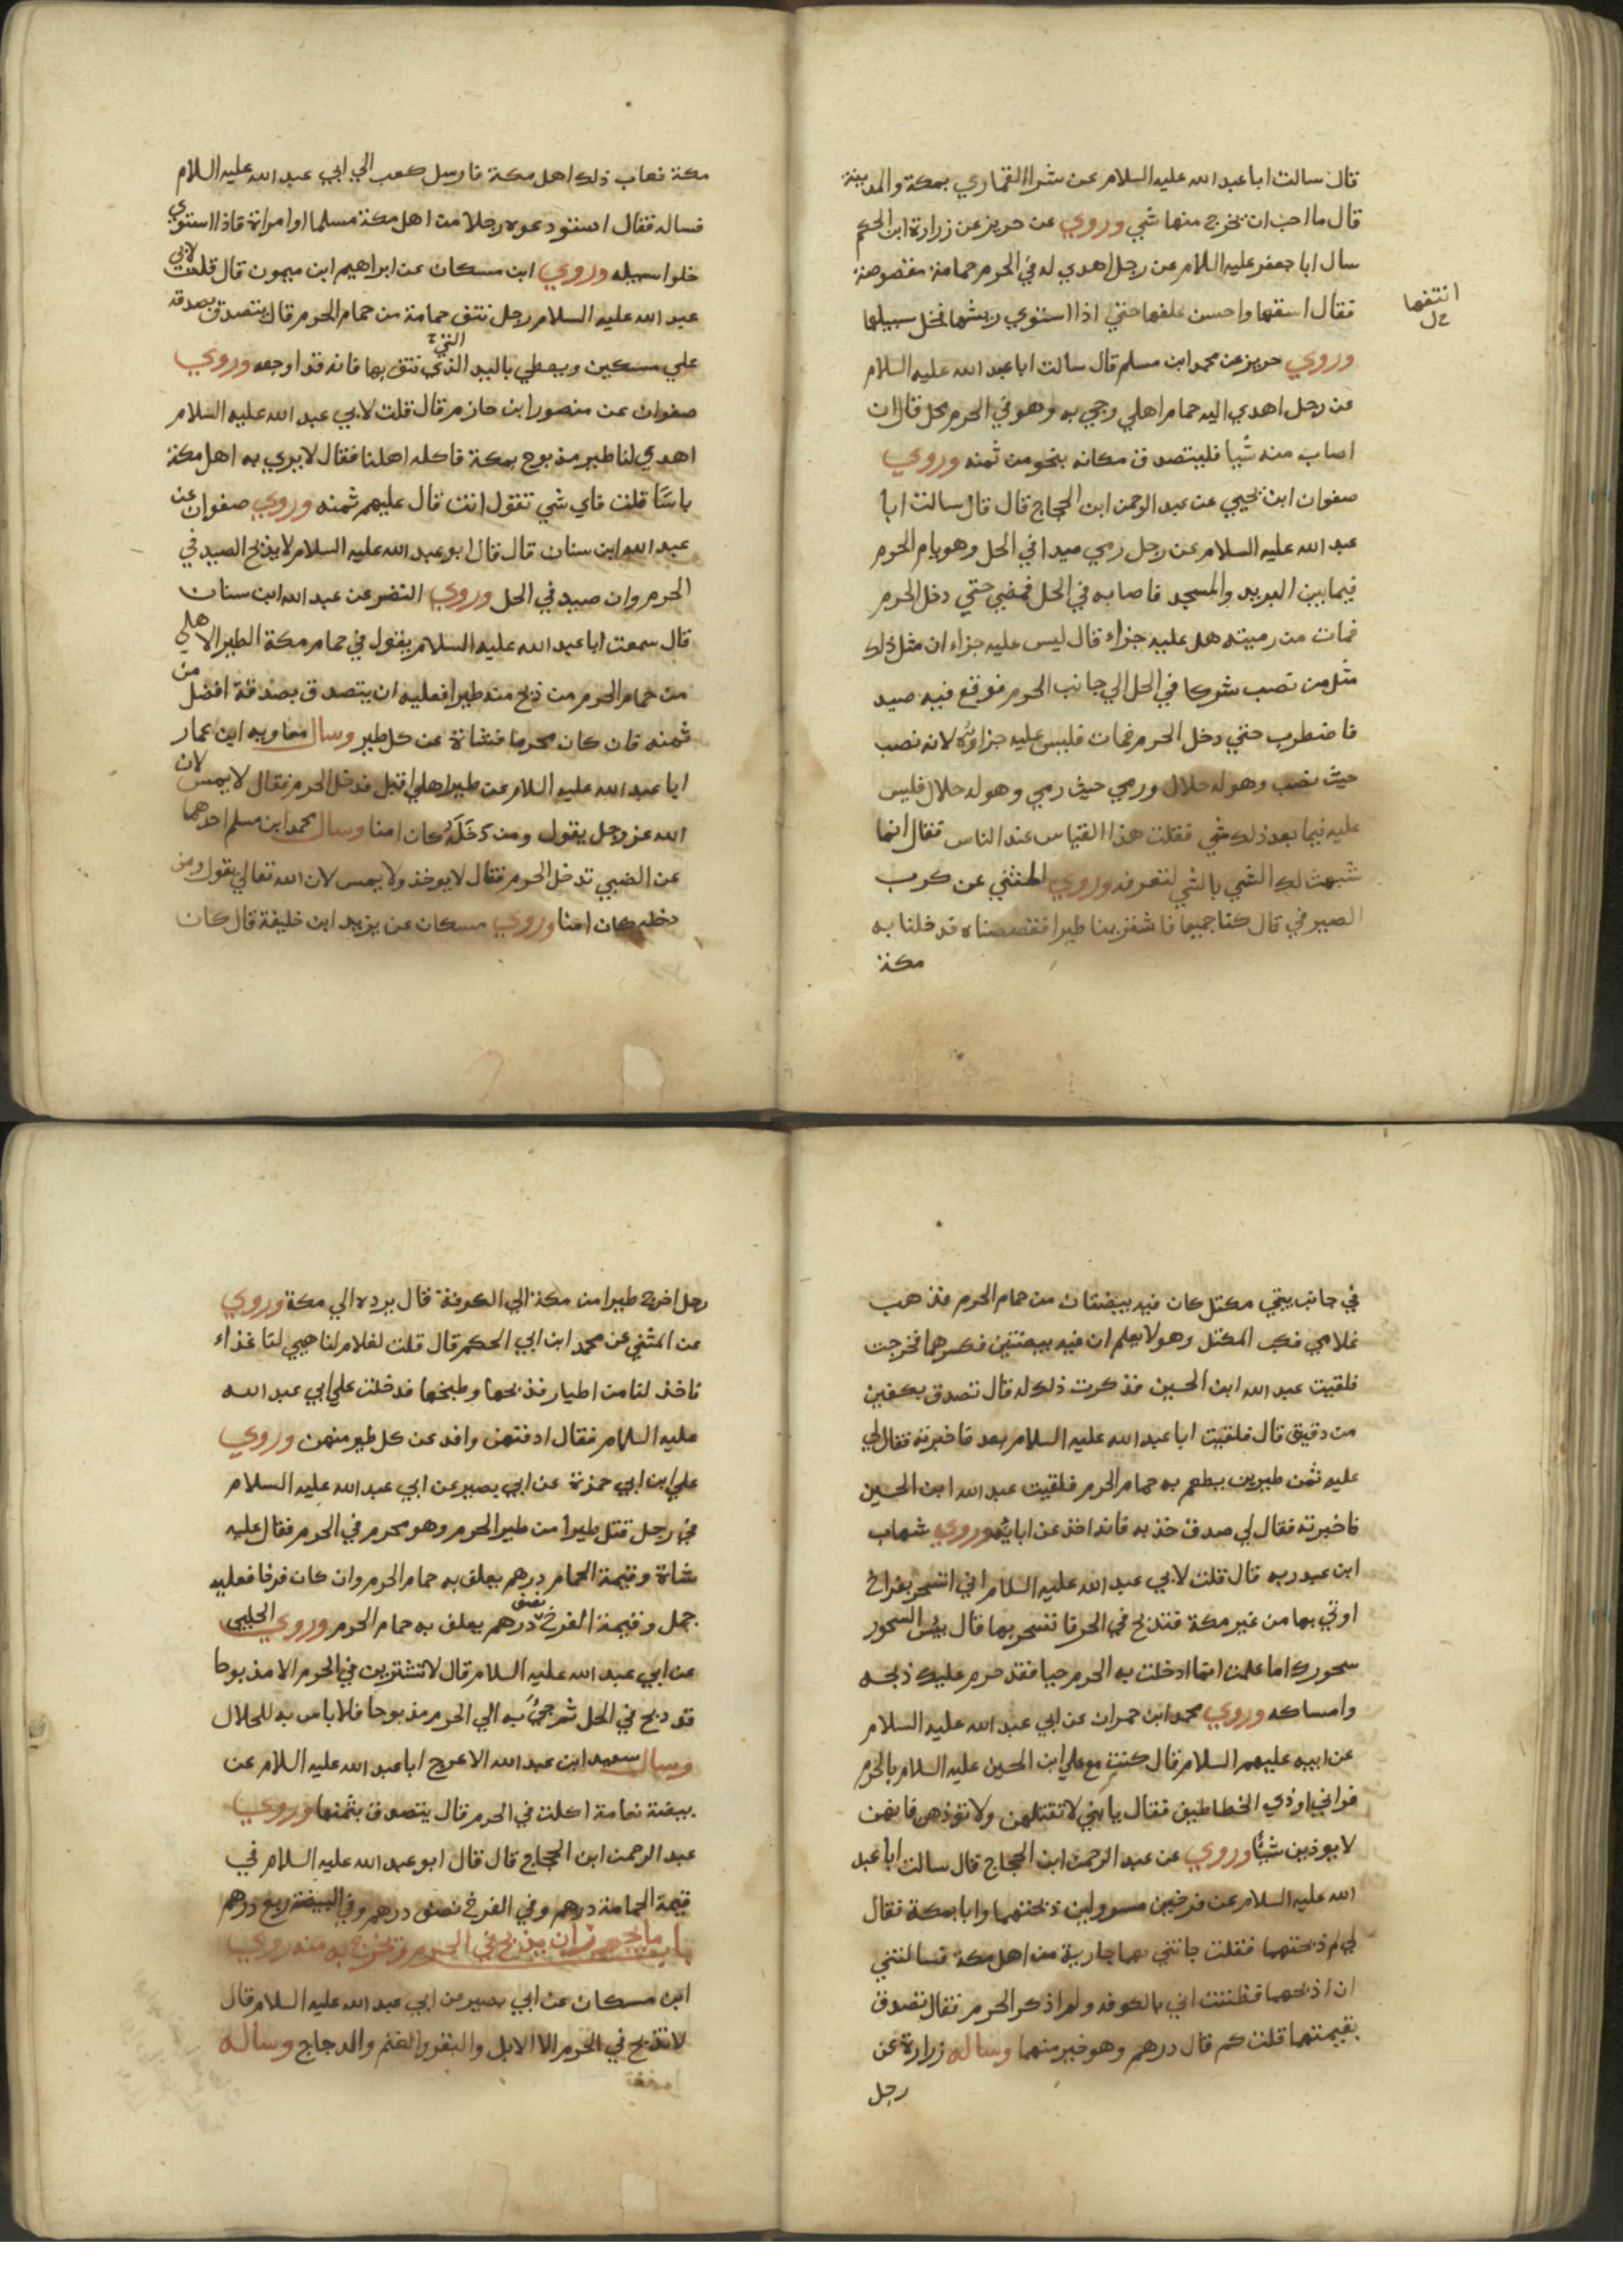 قال سالت ابا عبد الله عليه السلام عن شرا القماري بمكة والمدينة
قال ما احب ان يخرج منها شي وروي عن حريز عن زرارة ابن الحكم
سال ابا جعفر عليه السلام عن رجل اهدي له في الحرم حمامة مقصوصة
فقال اسقها واحسن علفها حتي اذا استوي ريشها فخل سبيلها
انتفها
وروي حريز عن محمد ابن مسلم قال سالت ابا عبد الله عليه السلام
عن رجل اهدي اليه حمام اهلي وجي به وهو في الحرم محل قال ان
اصاب منه شيا فليتصدق مكانه بنحو من ثمنه وروي
صفوان ابن يحيي عن عبد الرحمن ابن الحجاج قال قال سالت ابا
عبد الله عليه السلام عن رجل رمي صيدا في الحل وهو يام الحرم
فيما بين البريد والمسجد فاصابه في الحل فمضي حتي دخل الحرم
فمات من رميته هل عليه جزاء قال ليس عليه جزاء ان مثل ذلك
مثل من نصب شركا في الحل الي جانب الحرم فوقع فيه صيد
فاضطرب حتي دخل الحرم فمات فليس عليه جزاوه لانه نصب
حيث نصب وهو له حلال ورمي حيث رمي وهو له حلال فليس
عليه فيما بعد ذلك شي فقلت هذا القياس عند الناس فقال انما
شبهت لك الشي بالشي لتعرفه وروي المثني عن كرب
الصيرفي قال كنا جميعا فاشترينا طيرا فقصصناه فدخلنا به
مكة
مكة فعاب ذلك اهل مكة فارسل كعب الي ابي عبد الله عليه السلام
فساله فقال استودعوه رجلا من اهل مكة مسلما او امراة فاذا استوي
خلوا سبيله وروي ابن مسكان عن ابراهيم ابن ميمون قال قلت لابي
عبد الله عليه السلام رجل نتف حمامة من حمام الحرم قال يتصدق بصدقة
علي مسكين ويعطي باليد الذي التي نتف بها فانه قد اوجعه وروي
صفوان عن منصور ابن حازم قال قلت لابي عبد الله عليه السلام
اهدي لنا طير مذبوح بمكة فاكله اهلنا فقال لا يري به اهل مكة
باسا قلت فاي شي تقول انت قال عليهم ثمنه وروي صفوان عن
عبد الله ابن سنان قال قال ابو عبد الله عليه السلام لا يذبح الصيد في
الحرم وان صيد في الحل وروي النضر عن عبد الله ابن سنان
قال سمعت ابا عبد الله عليه السلام يقول في حمام مكة الطير الاهلي
من حمام الحرم من ذبح منه طيرا فعليه ان يتصدق بصدقة افضل من
ثمنه فان كان محرما فشاة عن كل طير وسال معاويه ابن عمار
ابا عبد الله عليه السلام عن طير اهلي اقبل فدخل الحرم فقال لا يمس لان
الله عز وجل يقول ومن دخله كان امنا وسال محمد ابن مسلم احدهما
عن الضبي تدخل الحرم فقال لا يوخذ ولا يمس لان الله تعالي يقول ومن
دخله كان امنا وروي مسكان عن يزيد ابن خليفة قال كان
في جانب بيتي مكتل كان فيه بيضتان من حمام الحرم فذهب
غلامي فكب المكتل وهو لا يعلم ان فيه بيضتين فكسرهما فخرجت
فلقيت عبد الله ابن الحسين فذكرت ذلك له قال تصدق بكفين
من دقيق قال فلقيت ابا عبد الله عليه السلام بعد فاخبرته فقال لي
عليه ثمن طيرين يطعم به حمام الحرم فلقيت عبد الله ابن الحسين
فاخبرته فقال لي صدق خذ به فانه اخذ عن ابايه وروي شهاب
ابن عبد ربه قال قلت لابي عبد الله عليه السلام اني اتسحر بفراخ
اوتي بها من غير مكة فتذبح في الحرم فاتسحر بها قال بئس السحور
سحورك اما علمت انما ادخلت به الحرم حيا فقد حرم عليك ذبحه
وامساكه وروي محمد ابن حمران عن ابي عبد الله عليه السلام
عن ابيه عليهم السلام قال كنت مع علي ابن الحسين عليه السلام بالحرم
فراني اوذي الخطاطيف فقال يا بني لا تقتلهن ولا توذهن فانهن
لا يوذين شيئا وروي عن عبد الرحمن ابن الحجاج قال سالت ابا عبد
الله عليه السلام عن فرخين مسرولين ذبحتهما وانا بمكة فقال
لي لم ذبحتهما فقلت جاتني بهما جارية من اهل مكة فسالتني
ان اذبحهما فظننت اني بالكوفه ولم اذكر الحرم فقال تصدق
بقيمتهما قلت كم قال درهم وهو خير منهما وساله زرارة عن
رجل
رجل اخرج طيرا من مكة الي الكوفة قال يرده الي مكة وروي
عن المثني عن محمد ابن ابي الحكم قال قلت لغلام لنا هيي لنا غذاء
فاخذ لنا من اطيار فذبحها وطبخها فدخلت علي ابي عبد الله
عليه السلام فقال ادفنهن وافد عن كل طير منهن وروي
علي ابن ابي حمزة عن ابي بصير عن ابي عبد الله عليه السلام
في رجل قتل طيرا من طير الحرم وهو محرم في الحرم فقال عليه
شاة وقيمة الحمام درهم يعلف به حمام الحرم وان كان فرخا فعليه
حمل وقيمة الفرخ نصف درهم يعلف به حمام الحرم وروي الحلبي
عن ابي عبد الله عليه السلام قال لا تشترين في الحرم الا مذبوحا
قد ذبح في الحل ثم جئ به الي الحرم مذبوحا فلا باس به للحلال
وسال سعيد ابن عبد الله الاعرج ابا عبد الله عليه السلام عن
بيضة نعامة اكلت في الحرم قال يتصدق بثمنها وروي
عبد الرحمن ابن الحجاج قال قال ابو عبد الله عليه السلام في
قيمة الحمامة درهم وفي الفرخ نصف درهم وفي البيضة ربع درهم
باب ما يجوز ان يذبح في الحرم ويخرج به منه روي
ابن مسكان عن ابي بصير عن ابي عبد الله عليه السلام قال
لا تذبح في الحرم الا الابل والبقر والغنم والدجاج وساله